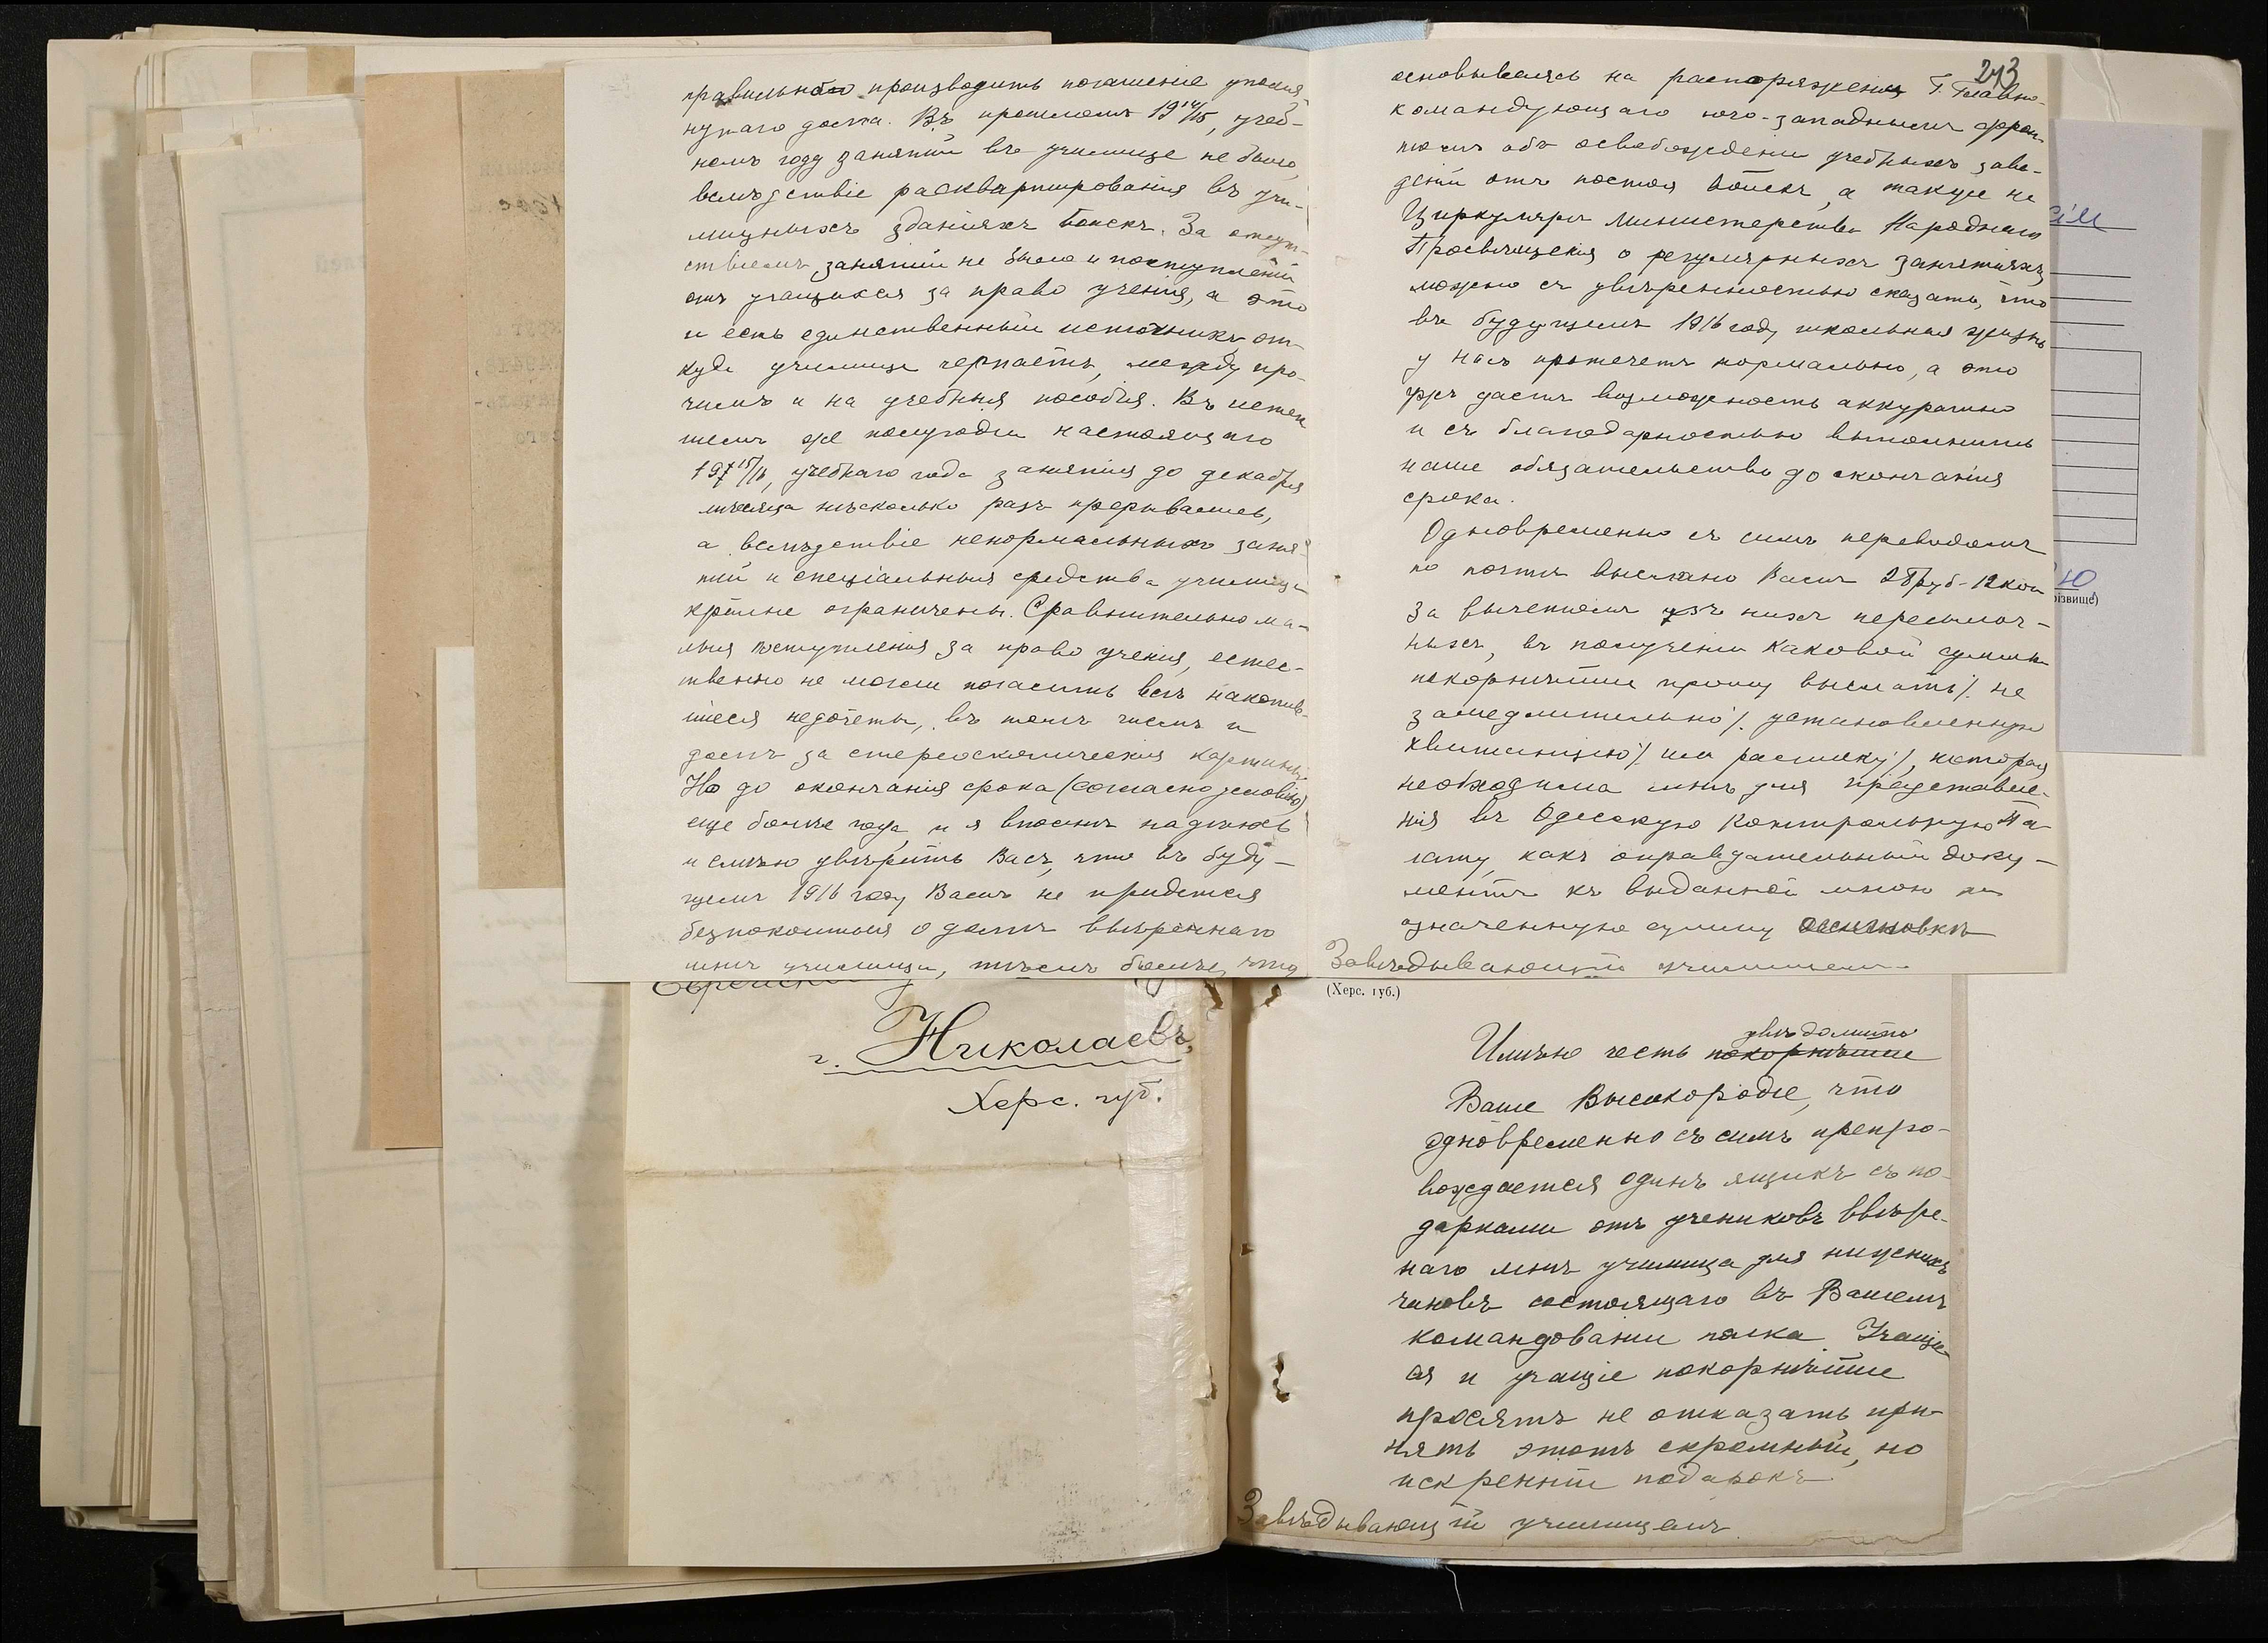 правильно производить погашеніе упомя-
нутаго долга. Въ прошломъ 1914/15, учеб-
номъ году занятій въ училищѣ не было,
вслѣдствіе расквартированія въ учи-
лищныхъ зданіяхъ войскъ. За отсут-
ствіемъ занятій не было и поступленій
отъ учащихся за право ученія, а это
и есть единственный источникъ от-
куда училище черпаетъ, между про-
чимъ и на учебныя пособія. Въ истек-
шемъ же полугодіи настоящаго
1915/16, учебнаго года занятія до декабря
мѣсяца нѣсколько разъ прерывались,
а вслѣдствіе ненормальныхъ заня-
тій и спеціальныя средства училища
крайне ограничены. Сравнительно ма-
лыя поступленія за право ученія, естес-
твенно не могли погасить всѣ накопив-
шіеся недочеты, въ томъ числѣ и
долгъ за стереоскопическія картины.
Но до окончанія срока (согласно условію)
еще больше года, и я вполнѣ надѣюсь
и смѣю увѣрить Васъ, что въ буду-
щемъ 1916 году Вамъ не придется
безпокоиться о долгѣ ввѣреннаго
мнѣ училища, тѣмъ болѣе, что
213
основываясь на распоряженіи Г. Главно-
командующаго юго-западнымъ фрон-
томъ объ освобожденіи учебныхъ заве-
деній отъ постоя войскъ, а также на
Циркуляръ Министерства Народнаго
Просвѣщенія о регулярныхъ занятіяхъ,
можно съ увѣренностью сказать, что
въ будущемъ 1916 году школьная жизнь
у насъ протечетъ нормально, а это
уже дастъ возможность аккуратно
и съ благодарностью выполнить
наше обязательство до окончанія
срока.
Одновременно съ симъ переводомъ
по почтѣ выслано Вамъ 28 руб. 12 коп
за вычетомъ изъ нихъ пересылоч-
ныхъ, въ полученіи каковой суммы
покорнѣйше прошу выслать /. не
замедлительно /. установленную
квитанцію /. или расписку /., которая
необходима мнѣ для представле-
нія въ Одесскую Контрольную Па-
лату, какъ оправдательный доку-
ментъ къ выданной мною на
означенную сумму ассигновкѣ
Завѣдывающій училищемъ
г. Николаевъ,
Херс. губ.
(Херс. губ.)
увѣдомить
Имѣю честь покорнѣйше
Ваше Высокородіе, что
одновременно съ симъ препро-
вождается одинъ ящикъ съ по-
дарками отъ учениковъ ввѣре-
наго мнѣ училища для нижнихъ
чиновъ состоящаго въ Вашемъ
командованіи полка. Учащіе-
ся и учащіе покорнѣйше
просятъ не отказать при-
нять этотъ скромный, но
искренній подарокъ.
Завѣдывающій училищемъ